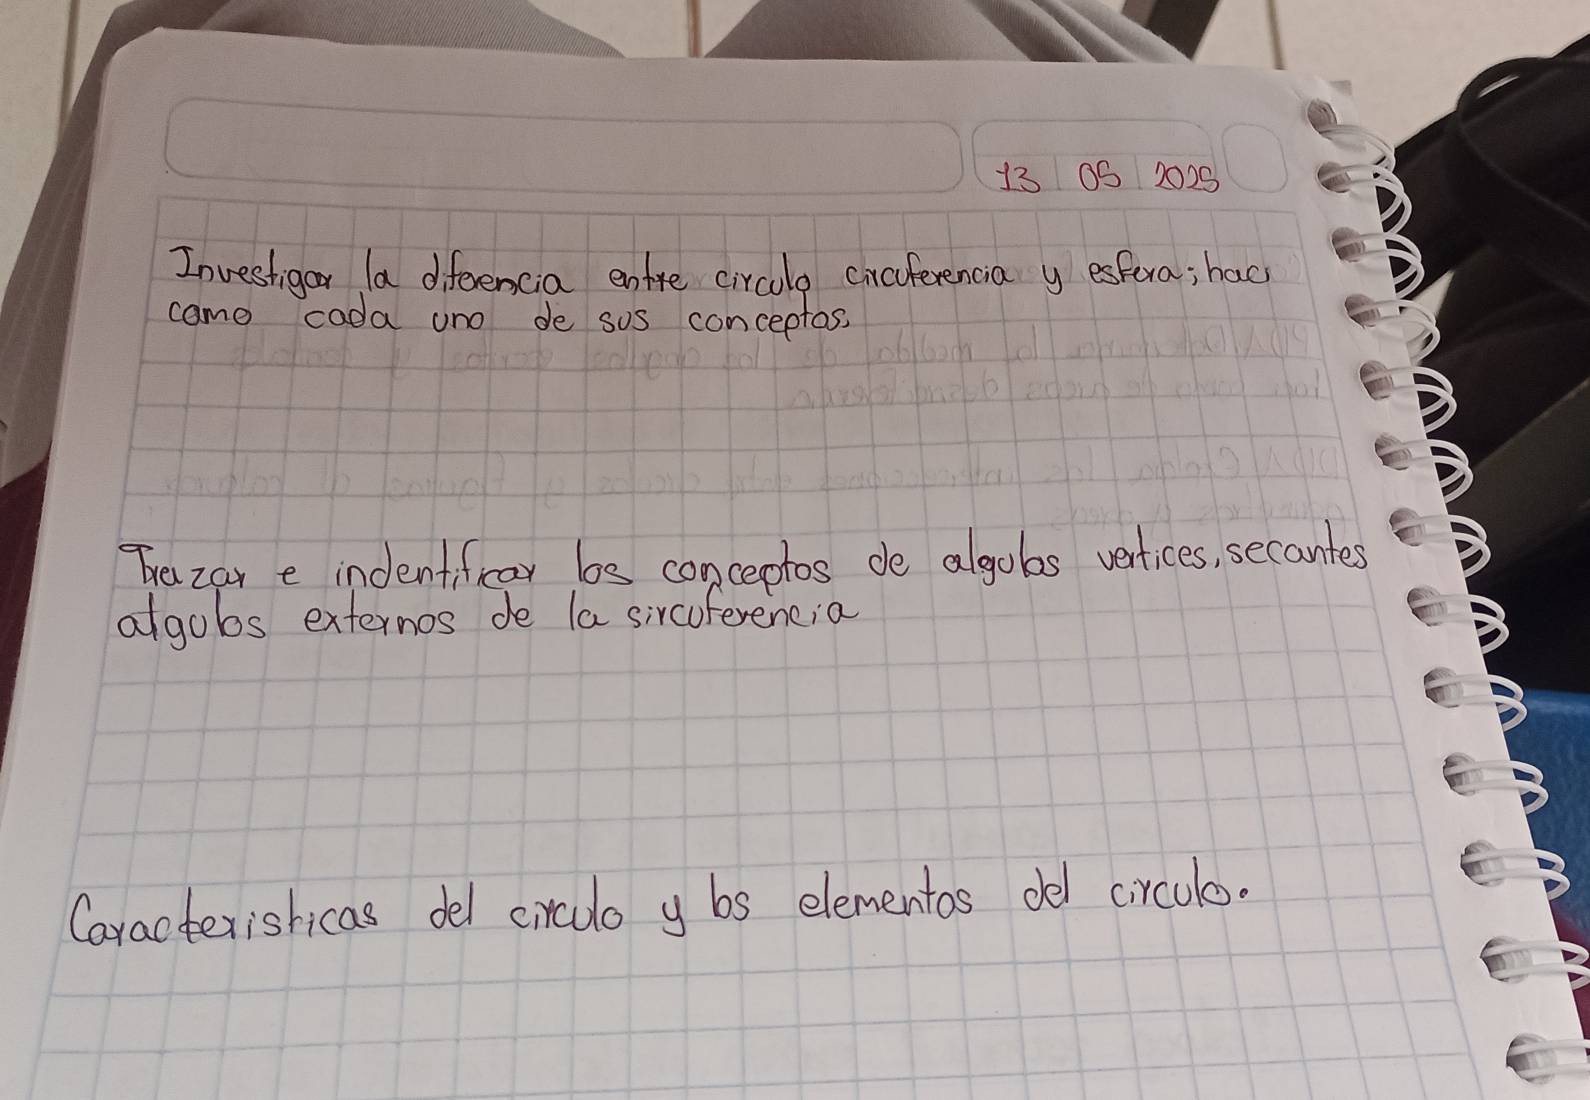 13 05 2025
Investigar la difeencia entre circulo circuferencia y esfera; haci
como cada uno de sus conceptos
Trazar e indentificar los conceptos de algulos vertices, secantes
algulos externos de la sircuferencia
Caracteristicas del circulo y los elementos del circulo.